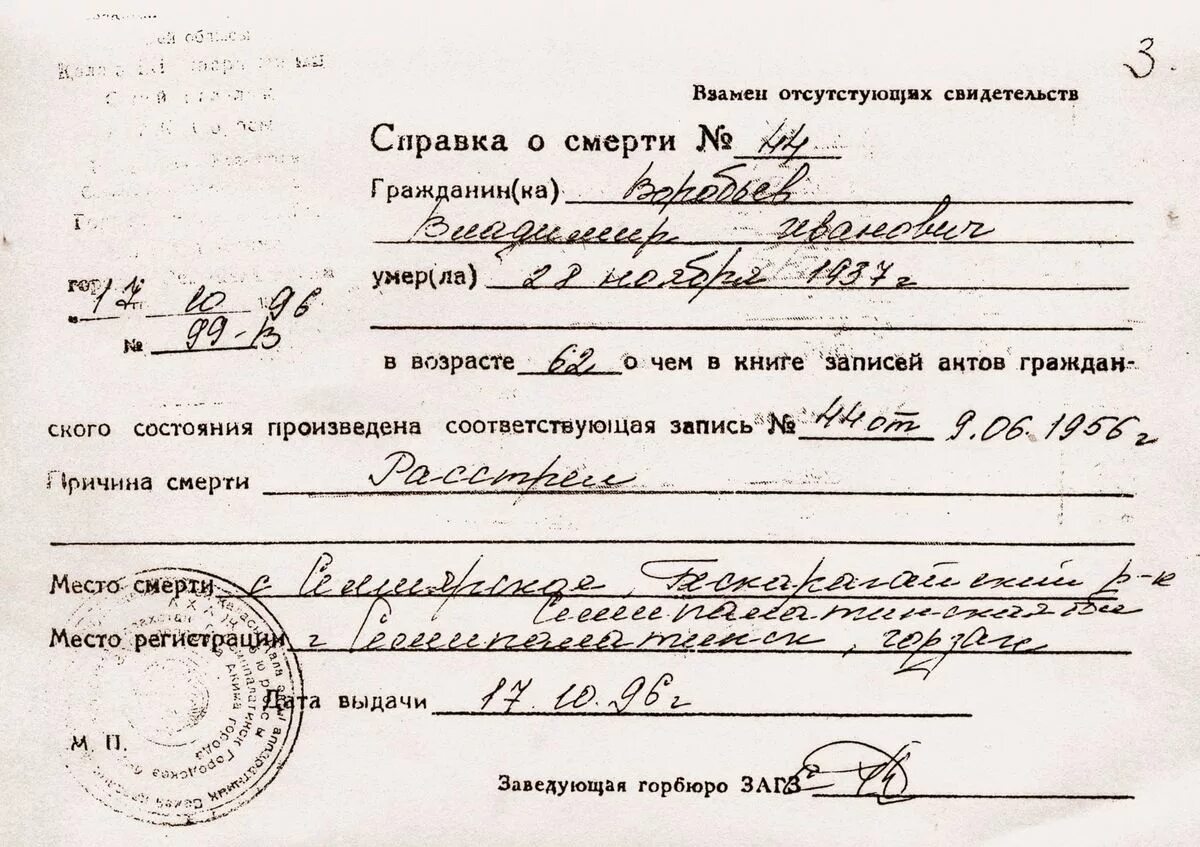 3.
ей облысы
Взамен отсутстующих свидетельств
Справка о смерти № 44
Гражданин(ка) Воробьев
Владимир Иванович
умер(ла) 28 ноября 1937 г
гор.
"17" 10 96
№ 99-В
в возрасте 62 о чем в книге записей актов граждан-
ского состояния произведена соответствующая запись № 44 от 9.06.1956 г
Причина смерти Расстрел
Место смерти с Семиярское, Бескарагайский р-н
Семипалатинская
Место регистрации г Семипалатинск, горзагс
Дата выдачи 17.10.96 г
М. П.
Заведующая горбюро ЗАГЗ